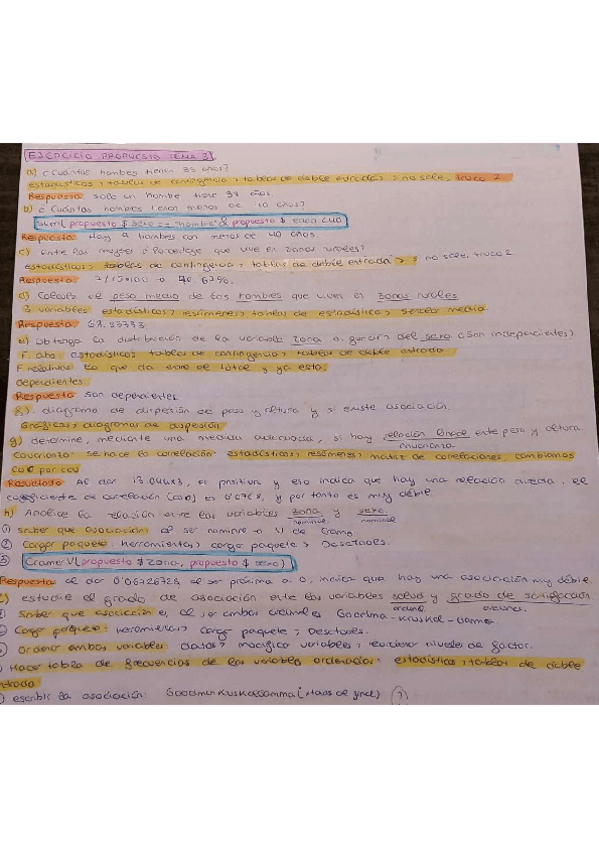 EJERCICIO PROPUESTO TEMA 3
a) ¿Cuántos hombres tienen 38 años?
estadísticos, tablas de contingencia, tablas de doble entrada, no sale, truco 2
Respuesta: solo un hombre tiene 38 años.
b) ¿Cuántos hombres tienen menos de 40 años?
sum( propuesto $ sexo == "hombre" & propuesto $ edad < 40)
Respuesta: Hay 9 hombres con menos de 40 años.
c) entre las mujeres ¿Porcentaje que vive en zonas rurales?
estadísticos, tablas de contingencia, tablas de doble entrada, no sale, truco 2
Respuesta:
d) Calcule el peso medio de los hombres que viven en zonas rurales
3 variables estadísticos, resúmenes, tablas de estadísticos, selecc media.
Respuesta: 67.33333
e) Obtenga la distribución de la variable zona en función del sexo ¿Son independientes?
F. abs: estadísticos, tablas de contingencia, tablas de doble entrada
F relativas: lo que da entre el total y ya esta.
dependientes.
Respuesta son dependientes
f) diagrama de dispersión de peso y altura y si existe asociación.
Gráficas, diagramas de dispersión
g) determine, mediante una medida adecuada, si hay relación lineal entre peso y altura.
Covarianza: se hace la correlación: estadísticos, resúmenes, matriz de correlaciones, cambiamos
cor por cov
Resultado: Al dar es positivo y eso indica que hay una relación directa. el
coeficiente de correlación (cor) es y por tanto es muy débil
h) Analice la relación entre las variables zona y sexo.
nominal nominal
① Saber que asociación: al ser nominal V de Cramer
② Cargar paquete: herramientas, cargar paquete, DescTools.
③ CramerV( propuesto $ zona, propuesto $ sexo)
Respuesta: al dar 0'06726728 al ser próxima a 0, indica que hay una asociación muy débil
estudie el grado de asociación entre las variables salud y grado de satisfacción
ordinal ordinal
Saber que asociación es, al ser ambas ordinales Goodman-Kruskal-Gamma.
Cargar paquete: herramientas, cargar paquete, DescTools.
Ordenar ambas variables: datos, modificar variables, reordenar niveles de factor.
Hacer tabla de frecuencias de las variables ordenadas: estadísticos, tablas de doble
entrada
escribir la asociación: GoodmanKruskalGamma( )